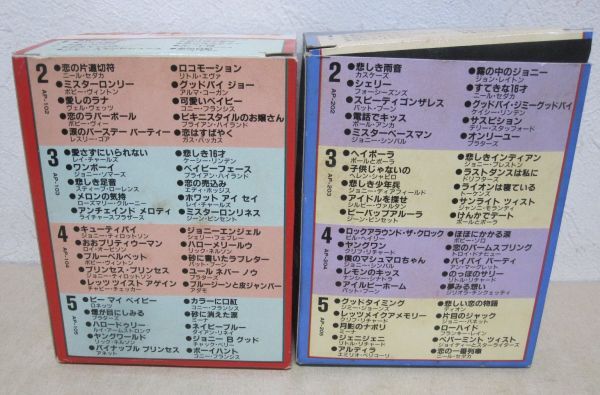 2
AP-102
●恋の片道切符
ニール・セダカ
●ミスターロンリー
ボビー・ヴィントン
●愛しのラナ
ヴェルヴェッツ
●恋のラバーボール
ボビー・ヴィー
●涙のバースデー パーティー
レスリー・ゴア
●ロコモーション
リトル・エヴァ
●グッドバイ ジョー
アルマ・コーガン
●可愛いベイビー
コニー・フランシス
●ビキニスタイルのお嬢さん
ブライアン・ハイランド
●恋はすばやく
ガス・バッカス
3
AP-103
●愛さずにいられない
レイ・チャールズ
●ワンボーイ
ジョニー・ソマーズ
●悲しき足音
スティーブ・ローレンス
●メロンの気持
ローズマリー・クルーニー
●アンチェインド メロディ
ライチャース・ブラザーズ
●悲しき16才
ケーシー・リンデン
●ベイビーフェース
ブライアン・ハイランド
●恋の売込み
エディ・ホッジス
●ホワット アイ セイ
レイ・チャールズ
●ミスターロンリネス
ジーン・ピットニー
4
AP-104
●キューティパイ
ジョニー・ティロットソン
●おおプリティウーマン
ロイ・オービソン
●ブルーベルベット
ボビー・ヴィントン
●プリンセス・プリンセス
ジョニー・ティロットソン
●レッツツイスト アゲイン
チャビー・チェッカー
●ジョニーエンジェル
シェリー・フェブレー
●ハローメリールウ
リック・ネルソン
●砂に書いたラブレター
パット・ブーン
●ユール ネバー ノウ
プラターズ
●ブルージーンと皮ジャンパー
アダモ
5
AP-105
●ビー マイ ベイビー
ロネッツ
●煙が目にしみる
プラターズ
●ハロードゥリー
ルイ・アームストロング
●ヤングワールド
リック・ネルソン
●パイナップル プリンセス
アネット
●カラーに口紅
コニー・フランシス
●砂に消えた涙
ミーナ
●ネイビーブルー
ダイアン・リネイ
●ジョニー B グッド
チャック・ベリー
●ボーイハント
コニー・フランシス
2
AP-202
●悲しき雨音
カスケーズ
●シェリー
フォー・シーズンズ
●スピーディゴンザレス
パット・ブーン
●電話でキッス
ポール・アンカ
●ミスターベースマン
ジョニー・シンバル
●霧の中のジョニー
ジョン・レイトン
●すてきな16才
ニール・セダカ
●グッドバイ・ジミーグッドバイ
キャシー・リンデン
●サスピション
テリー・スタッフォード
●オンリーユー
プラターズ
3
AP-203
●ヘイポーラ
ポールとポーラ
●子供じゃないの
ヘレン・シャピロ
●悲しき少年兵
ジョニー・ディアフィールド
●アイドルを探せ
シルビー・ヴァルタン
●ビーバップアルーラ
ジーン・ビンセット
●悲しきインディアン
ジョニー・プレストン
●ラストダンスは私に
ドリフターズ
●ライオンは寝ている
トーケンズ
●サンライト ツィスト
ジャンニ・モランディ
●けんかでデート
ポールとポーラ
4
AP-204
●ロックアラウンド・ザ・クロック
ビル・ヘイリー
●ヤングワン
クリフ・リチャード
●僕のマシュマロちゃん
ジョニー・シンバル
●レモンのキッス
ナンシー・シナトラ
●アイルビーホーム
パット・ブーン
●ほほにかかる涙
ボビー・ソロ
●恋のパームスプリング
トロイ・ドナヒュー
●バイバイ バーディ
アン・マーグレット
●のっぽのサリー
リトル・リチャード
●夢みる想い
ジリオラ・チンクェッティ
5
AP-205
●グッドタイミング
ジミー・ジョーンズ
●レッツメイクアメモリー
クリフ・リチャード
●月影のナポリ
ミーナ
●ジェニジェニ
リトル・リチャード
●アルディラ
エミリオ・ペリコーリ
●悲しい恋の物語
ディオン
●片目のジャック
ジョニー・ハミルト
●ローハイド
フランキー・レイン
●ペパーミント ツィスト
ジョイディーとスターライターズ
●恋の一番列車
ニール・セダカ